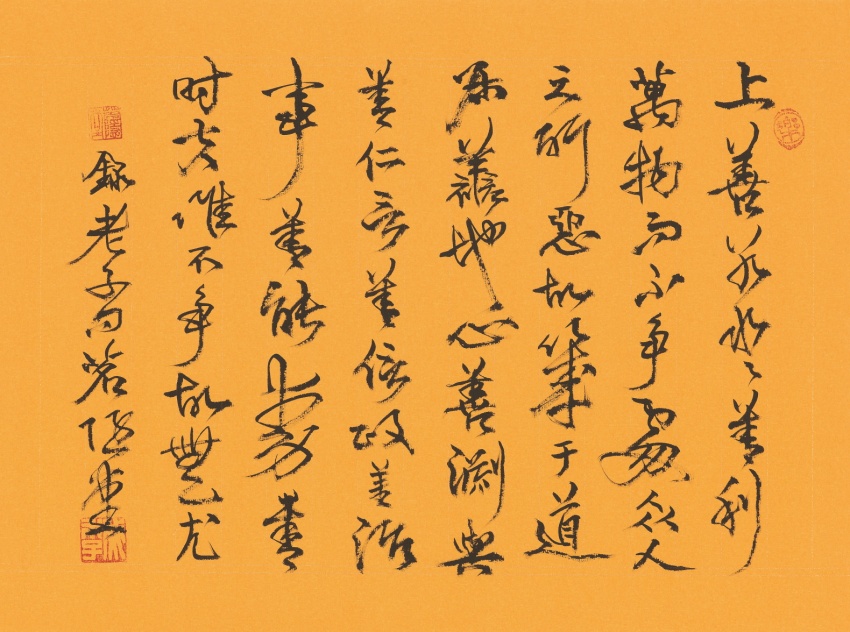 上善若水〻善利
萬物而不争處众人
之所惡故幾于道
居善地心善渊與
善仁言善信政善治
事善能動善
时夫唯不争故無尤
錄老子句